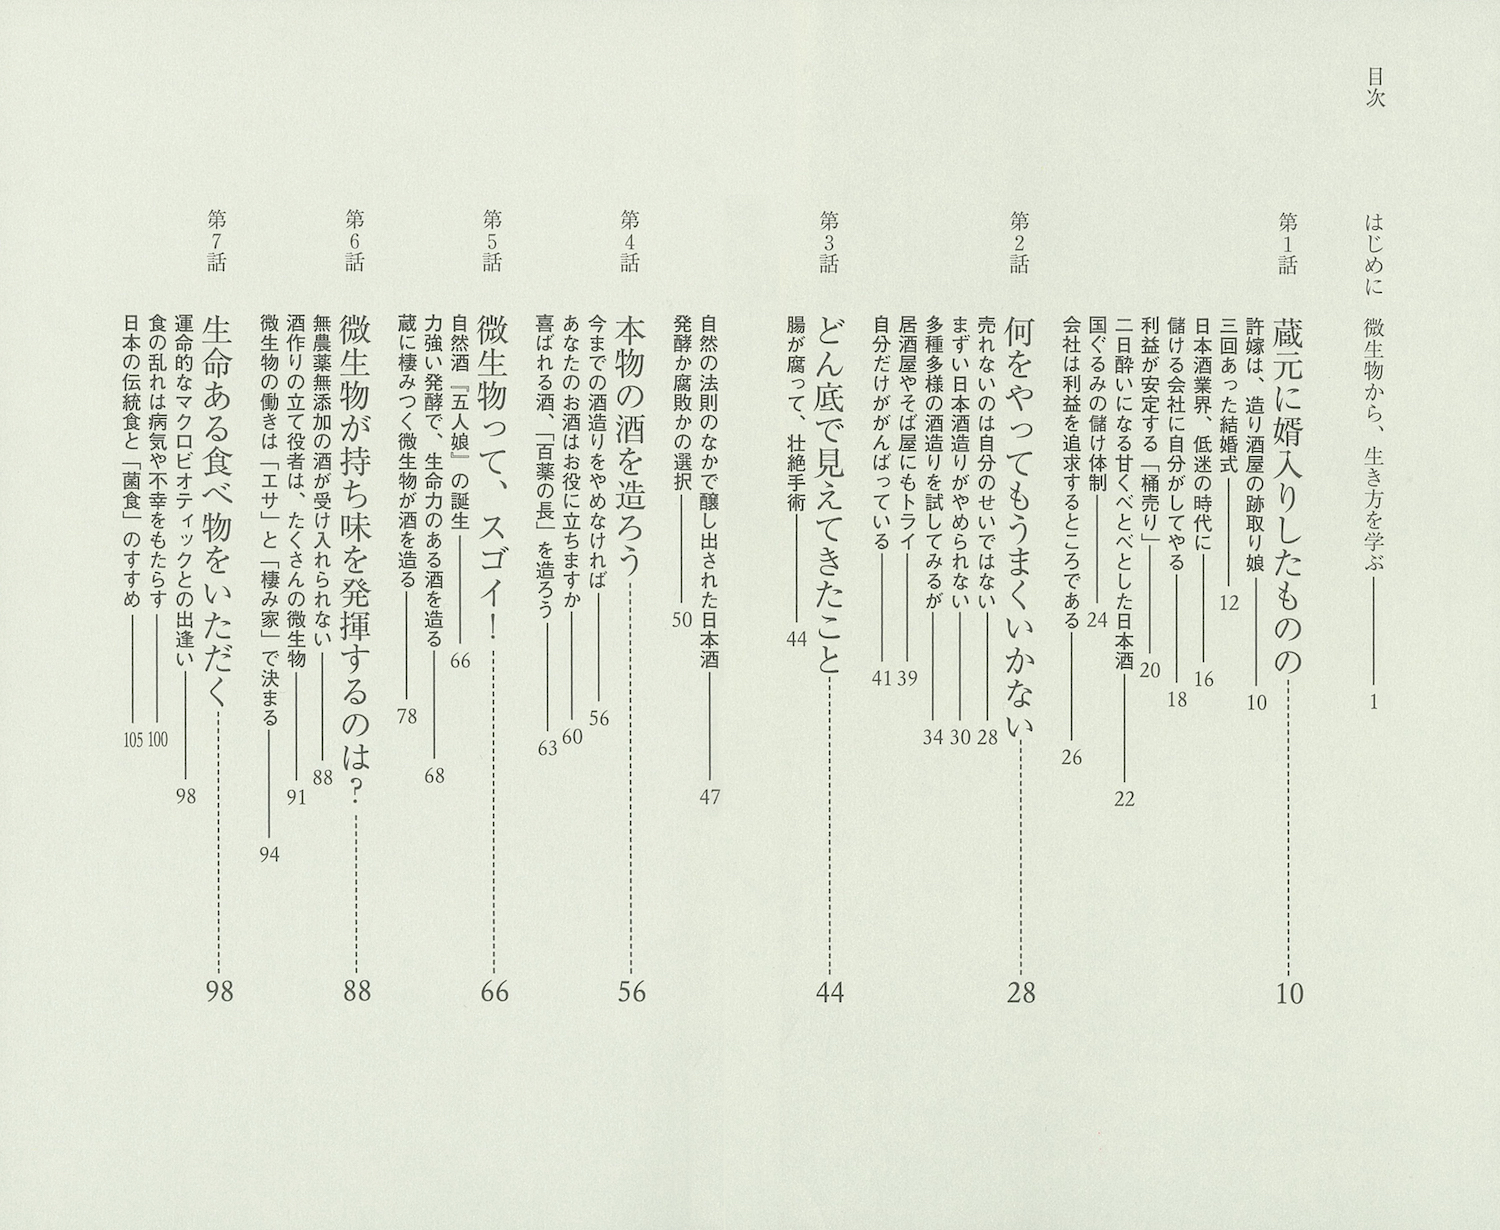 目次
はじめに 微生物から、生き方を学ぶ 1
第1話 蔵元に婿入りしたものの 10
許嫁は、造り酒屋の跡取り娘 10
三回あった結婚式 12
日本酒業界、低迷の時代に 16
儲ける会社に自分がしてやる 18
利益が安定する「桶売り」 20
二日酔いになる甘くべとべとした日本酒 22
国ぐるみの儲け体制 24
会社は利益を追求するところである 26
第2話 何をやってもうまくいかない 28
売れないのは自分のせいではない 28
まずい日本酒造りがやめられない 30
多種多様の酒造りを試してみるが 34
居酒屋やそば屋にもトライ 39
自分だけががんばっている 41
第3話 どん底で見えてきたこと 44
腸が腐って、壮絶手術 44
自然の法則のなかで醸し出された日本酒 47
発酵か腐敗かの選択 50
第4話 本物の酒を造ろう 56
今までの酒造りをやめなければ 56
あなたのお酒はお役に立ちますか 60
喜ばれる酒、「百薬の長」を造ろう 63
第5話 微生物って、スゴイ！ 66
自然酒『五人娘』の誕生 66
力強い発酵で、生命力のある酒を造る 68
蔵に棲みつく微生物が酒を造る 78
第6話 微生物が持ち味を発揮するのは？ 88
無農薬無添加の酒が受け入れられない 88
酒作りの立て役者は、たくさんの微生物 91
微生物の働きは「エサ」と「棲み家」で決まる 94
第7話 生命ある食べ物をいただく 98
運命的なマクロビオティックとの出逢い 98
食の乱れは病気や不幸をもたらす 100
日本の伝統食と「菌食」のすすめ 105